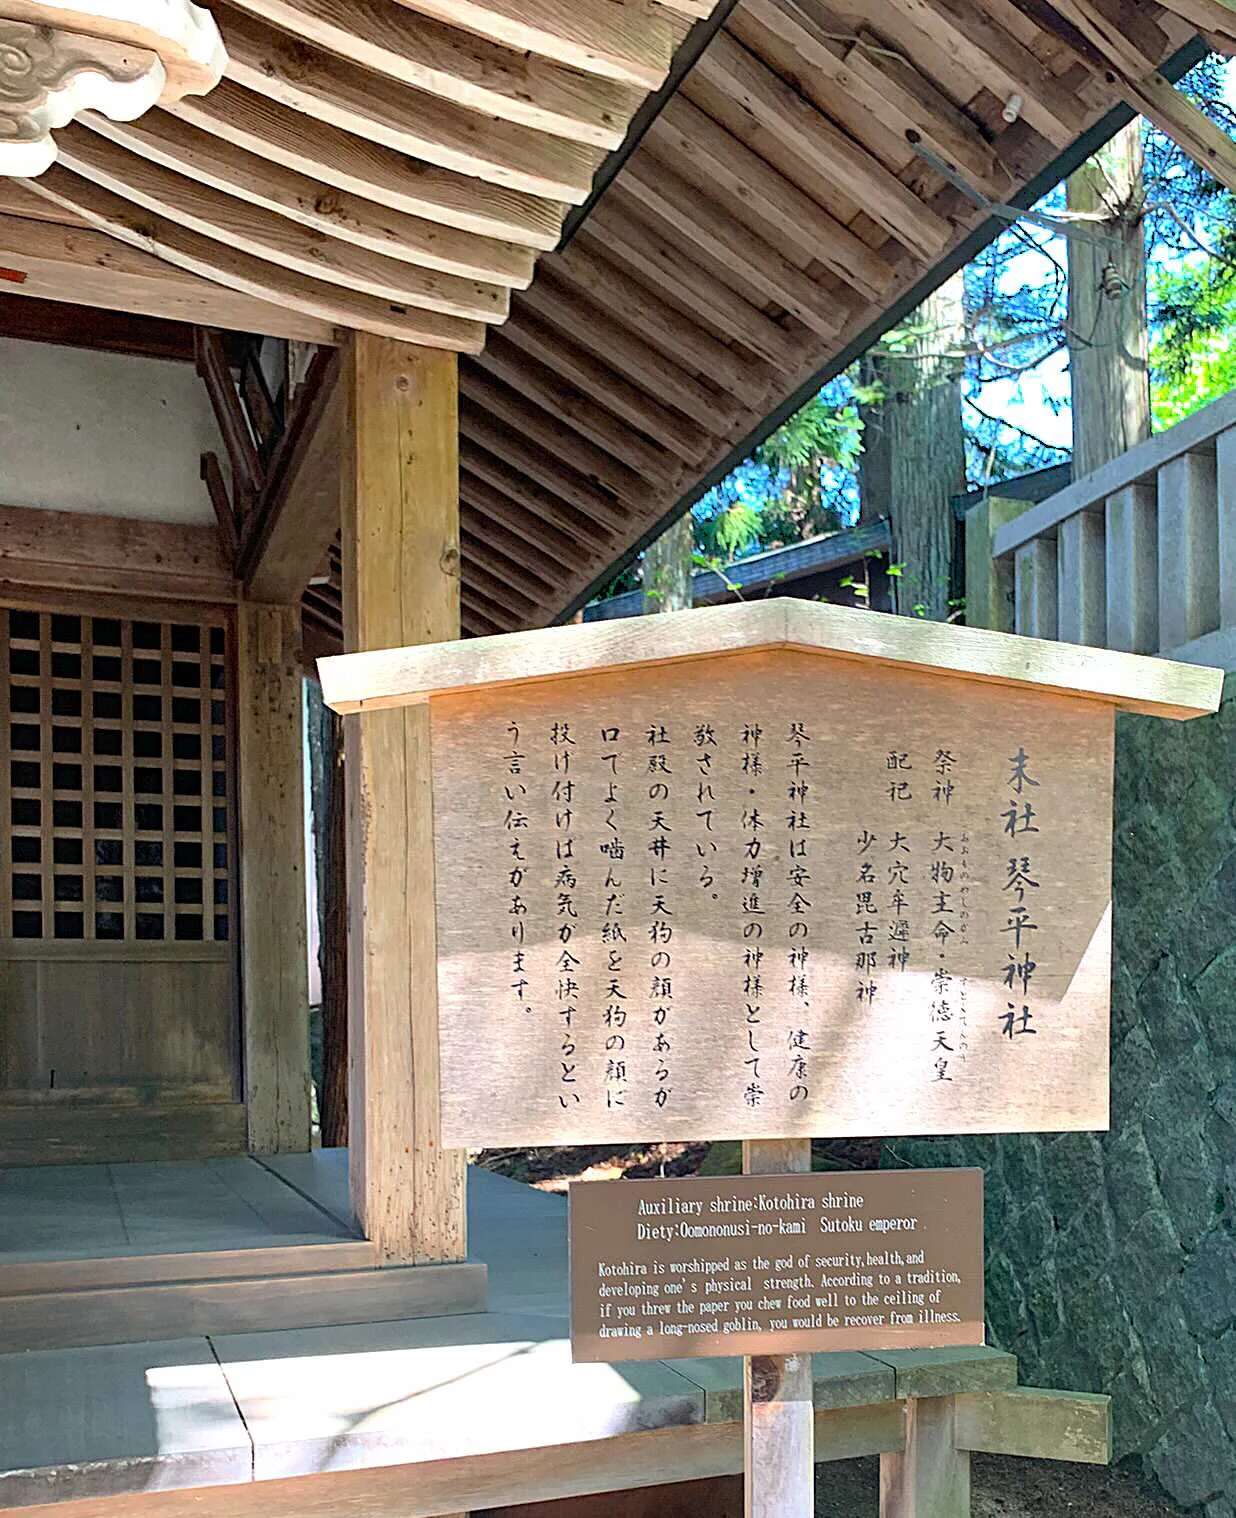 末社 琴平神社
祭神 大物主命・崇徳天皇
配祀 大穴牟遲神
少名毘古那神
琴平神社は安全の神様、健康の
神様・体力増進の神様として崇
敬されている。
社殿の天井に天狗の顔があるが
口でよく噛んだ紙を天狗の顔に
投け付けば病気が全快するとい
う言い伝えがあります。
Auxiliary shrine:Kotohira shrine
Diety:Oomononusi-no-kami Sutoku emperor
Kotohira is worshipped as the god of security,health,and
developing one's physical strength. According to a tradition,
if you threw the paper you chew food well to the ceiling of
drawing a long-nosed goblin, you would be recover from illness.